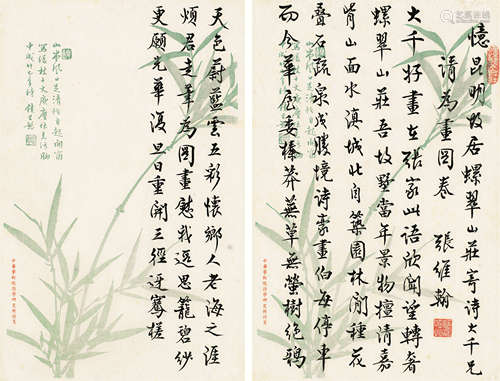 憶昆明故居螺翠山莊寄詩大千兄
請為畫圖卷
張維翰
大千好畫在張家此語欣聞望轉奢
螺翠山莊吾故墅當年景物檀清嘉
背山面水滇城北自築園林閒種花
疊石疏泉成勝境詩豪畫伯每停車
而今華屋委榛莽蕪草無螢樹絕鴉
天色蔚藍雲五彩懷鄉人老海之涯
煩君走筆為圖畫慰我遐思籠碧紗
更願光華復旦日重開三徑迓騫槎